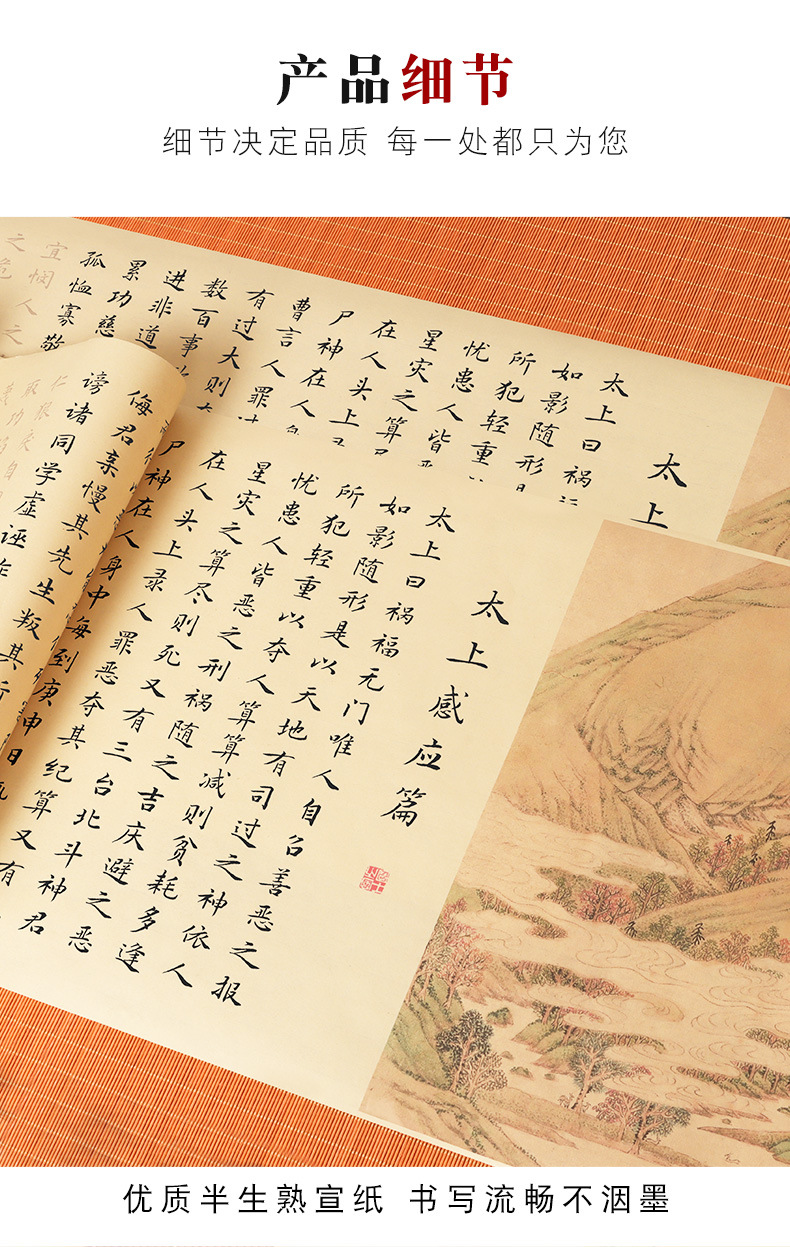 产品细节
细节决定品质 每一处都只为您
太上
太上曰祸
如影随形
所犯轻重
忧患人皆
星灾之算
在人头上
尸神在人
曹言人罪
有过大则
数百事
进非道
累功慈
孤恤寡敬
宜悯人之
之危
太上感应篇
太上曰祸福无门唯人自召善恶之报
如影随形是以天地有司过之神依人
所犯轻重以夺人算算减则贫耗多逢
忧患人皆恶之刑祸随之吉庆避之恶
星灾之算尽则死又有三台北斗神君
在人头上录人罪恶夺其纪算又有
尸神在人身中每到庚申日
侮君亲慢其先生叛其所
谤诸同学虚诬诈
优质半生熟宣纸 书写流畅不洇墨